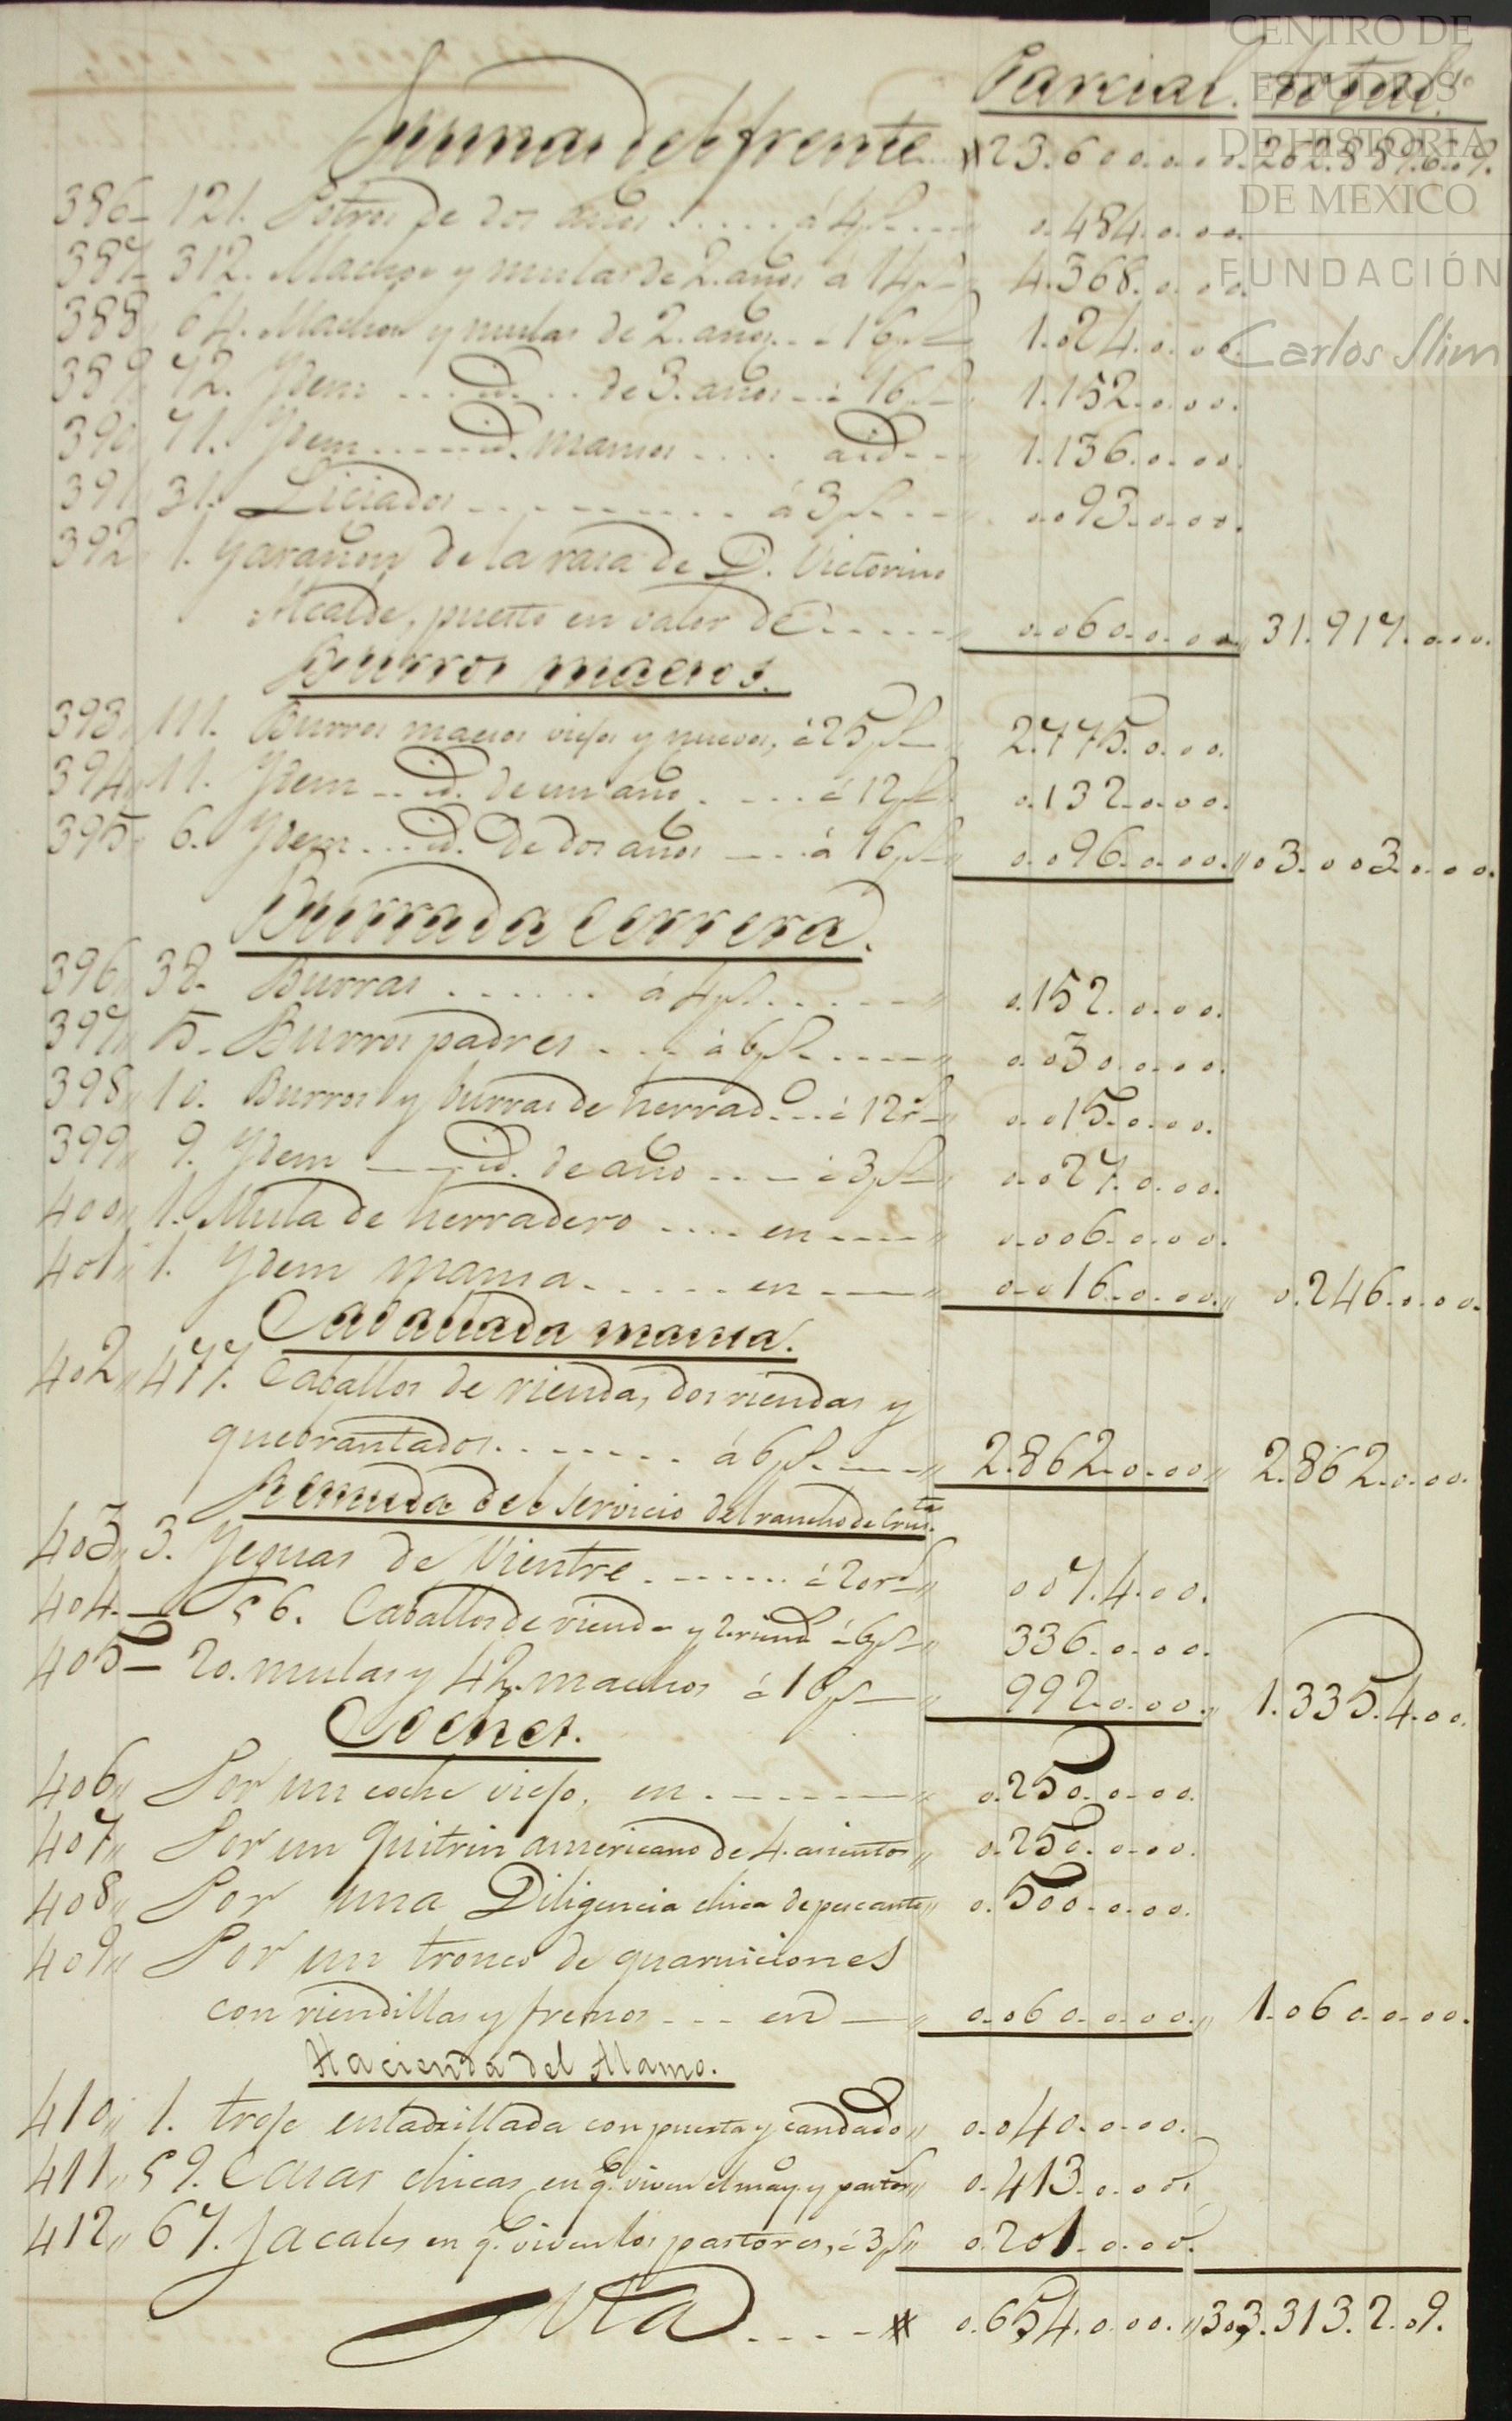 Parcial. Total.
Sumas del frente # 23.600.0.00. 262.889.6.09.
386 121. Potros de dos años ..... á 4 ps. ... 0.484.0.00.
387 312. Machos y mulas de 2. años á 14 ps 4.368.0.00.
388 64. Machos y mulas de 2. años .. á 16 ps 1.024.0.00.
389 72. Ydem ... id. .. de 3. años .. á 16 ps 1.152.0.00.
390 71. Ydem ..... id. mansos .... á id .. 1.136.0.00.
391 31. Liciados ......... á 3 ps ... 0.093.0.00.
392 1. Garañon de la raza de D. Victorino
Alcalde, puesto en valor de ..... 0.060.0.00. 31.917.0.00.
Burros maeros.
393 111. Burros maeros viejos y nuevos, á 25 ps 2.775.0.00.
394 11. Ydem .. id. de un año .... á 12 ps 0.132.0.00.
395 6. Ydem ... id. De dos años ... á 16 ps 0.096.0.00. 03.003.0.00.
Burrada cerrera.
396 38. Burras ...... á 4 ps ...... 0.152.0.00.
397 5. Burros padres .... á 6 ps ..... 0.030.0.00.
398 10. Burros y burras de herrado. ... á 12 rs 0.015.0.00.
399 9. Ydem ... id. de año .... á 3 ps 0.027.0.00.
400 1. Mula de herradero .... en .... 0.006.0.00.
401 1. Ydem mansa ...... en .... 0.016.0.00. 0.246.0.00.
Caballada mansa.
402 477. Caballos de rienda, dos riendas y
quebrantados ....... á 6 ps .... 2.862.0.00 2.862.0.00.
Remuda del servicio del rancho de
403 3. Yeguas de Vientre ....... á 20 rs 007.4.00.
404 56. Caballos de rienda y 2. riend. á 6 ps 336.0.00.
405 20. mulas y 42. machos á 16 ps 992.0.00. 1.335.4.00.
Coches.
406 Por un coche viejo, en ....... 0.250.0.00.
407 Por un Quitrin americano de 4. asientos 0.250.0.00.
408 Por una Diligencia chica de pescante 0.500.0.00.
409 Por un tronco de guarniciones
con riendillas y frenos ... en 0.060.0.00. 1.060.0.00.
Hacienda del Alamo.
410 1. troje enladrillada con puerta y candado 0.040.0.00.
411 59. Casas chicas, en q.e viven el may.o y pastor.s 0.413.0.00.
412 67. Jacales en q.e viven los pastores, á 3 ps 0.201.0.00.
Vta .... # 0.654.0.00. 303.313.2.09.
CENTRO DE
ESTUDIOS
DE HISTORIA
DE MEXICO
FUNDACIÓN
Carlos Slim